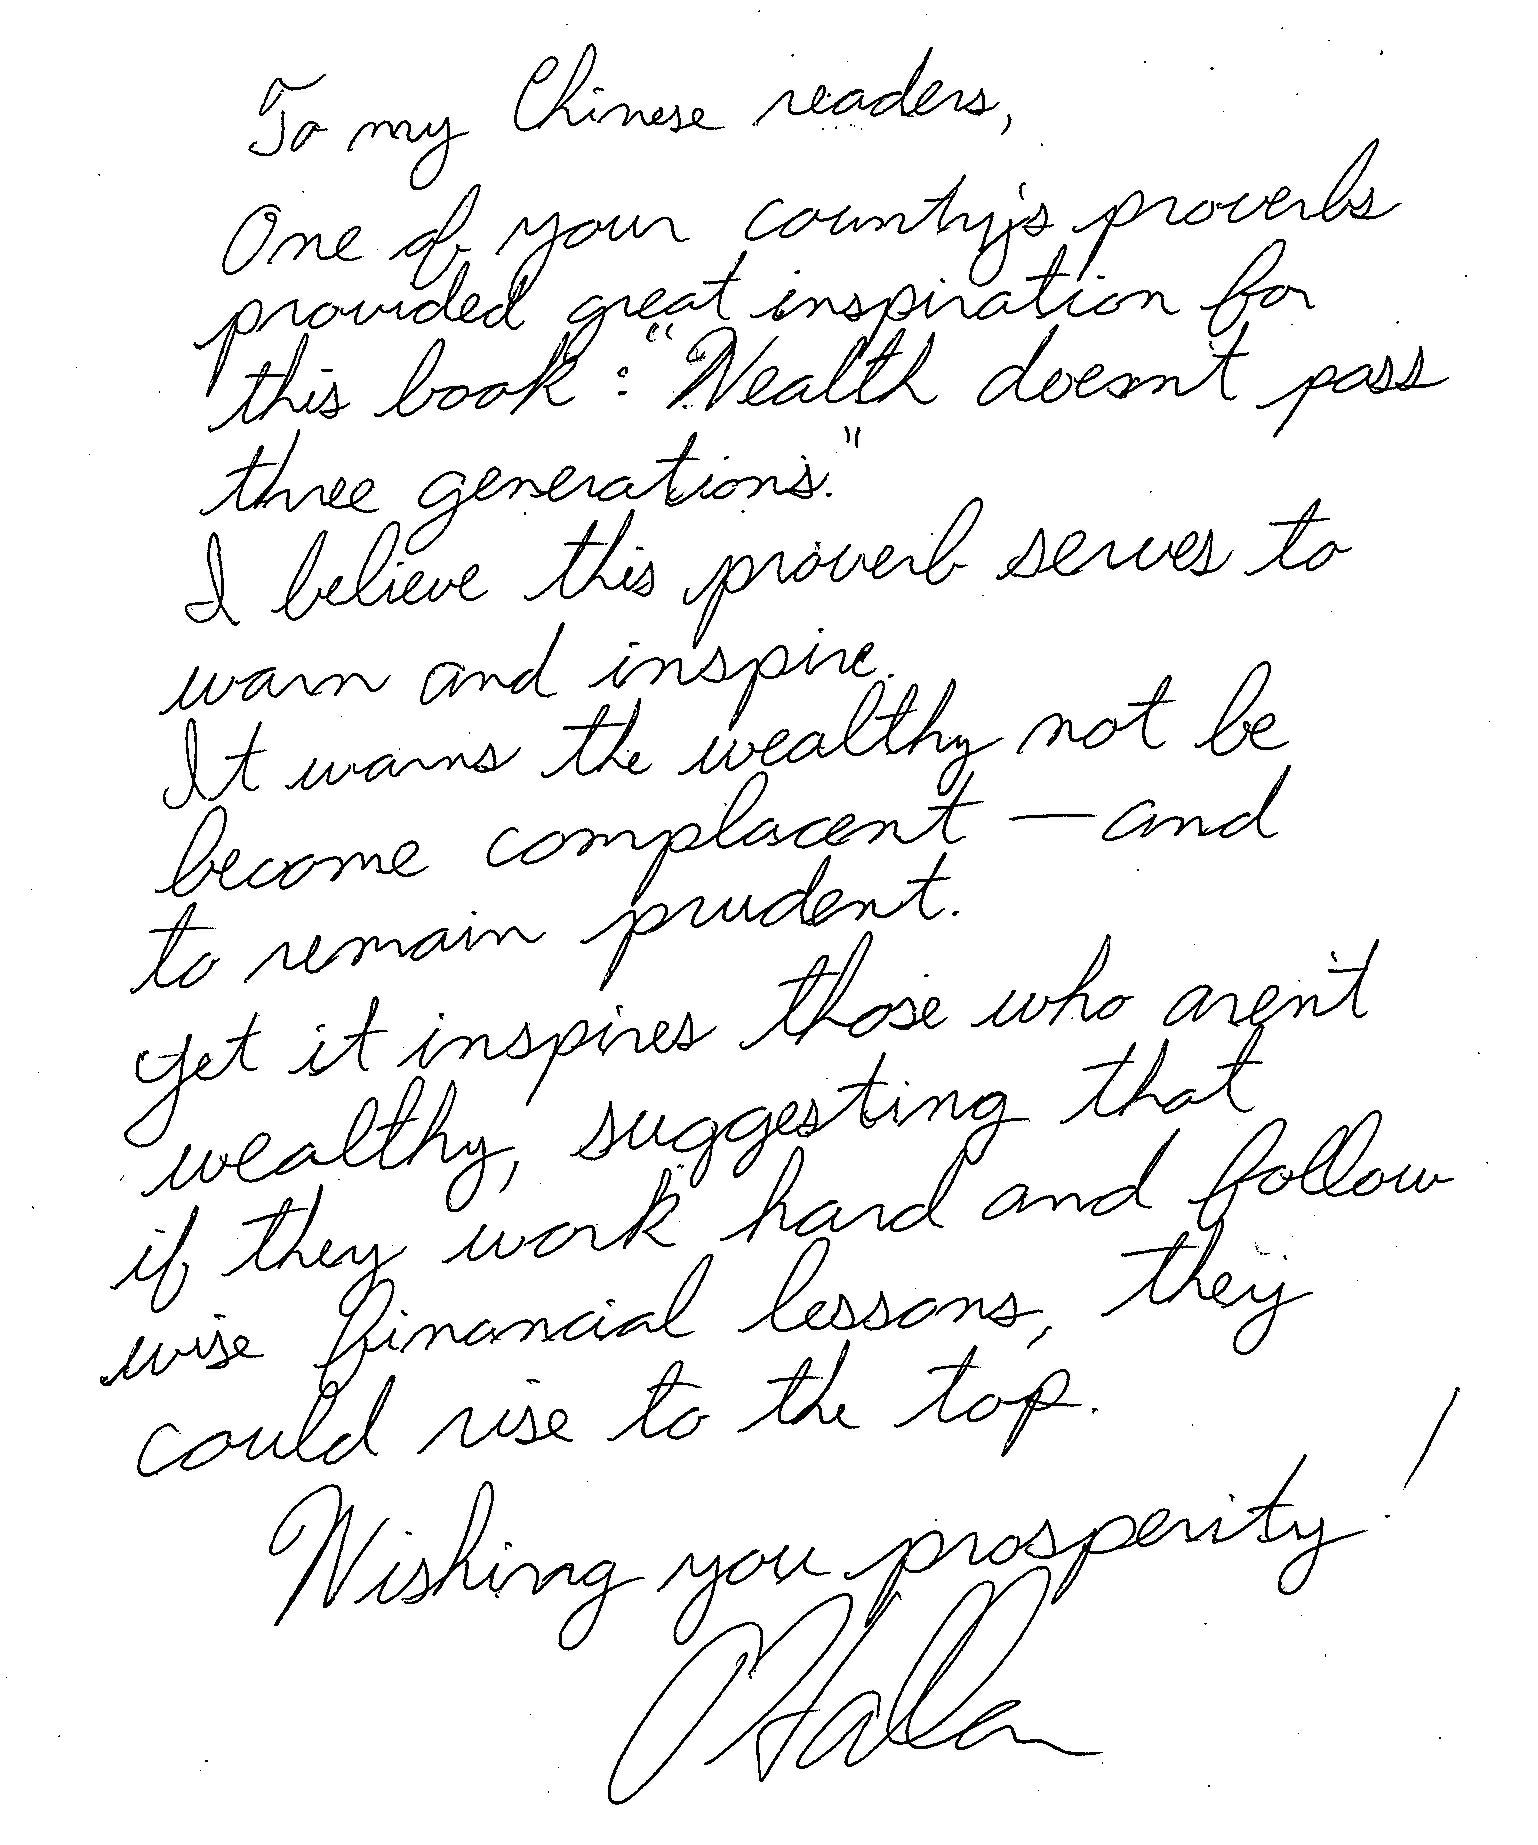 To my Chinese readers,
One of your county's proverbs
provided great inspiration for
this book: "Wealth doesn't pass
three generations."
I believe this proverb serves to
warn and inspire.
It warns the wealthy not be
become complacent — and
to remain prudent.
Yet it inspires those who aren't
wealthy, suggesting that
if they work hard and follow
wise financial lessons, they
could rise to the top.
Wishing you prosperity!